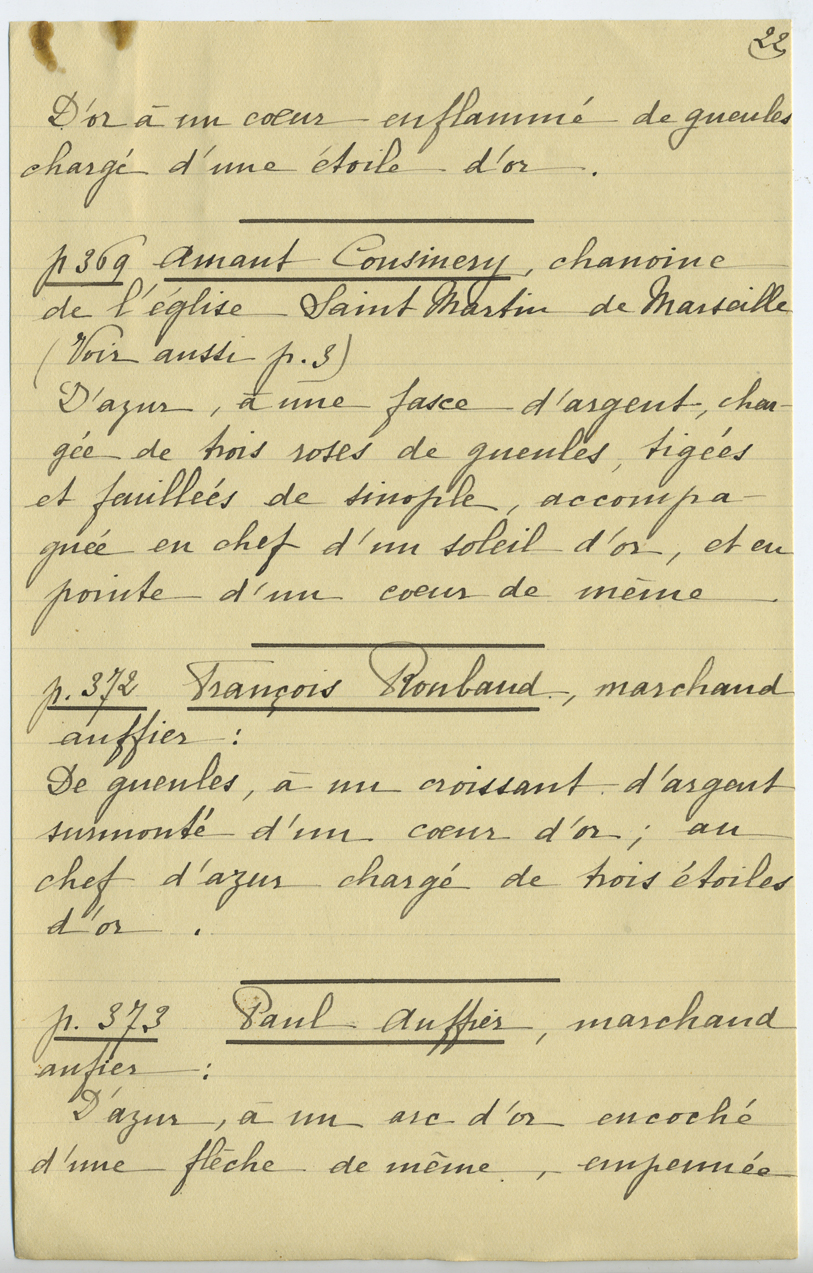 22
D'or à un cœur enflammé de gueules
chargé d'une étoile d'or .
p 369 Amant Cousinery, chanoine
de l'église Saint Martin de Marseille
(Voir aussi p. 3)
D'azur, à une fasce d'argent, char-
gée de trois roses de gueules, tigées
et feuilleés de sinople, accompa-
gnée en chef d'un soleil d'or, et en
pointe d'un cœur de même .
p. 372 François Roubaud, marchand
auffier :
De gueules, à un croissant d'argent
surmonté d'un cœur d'or ; au
chef d'azur chargé de trois étoiles
d'or .
p. 373 Paul Auffier, marchand
aufier :
D'azur, à un arc d'or encoché
d'une flèche de même, empennée